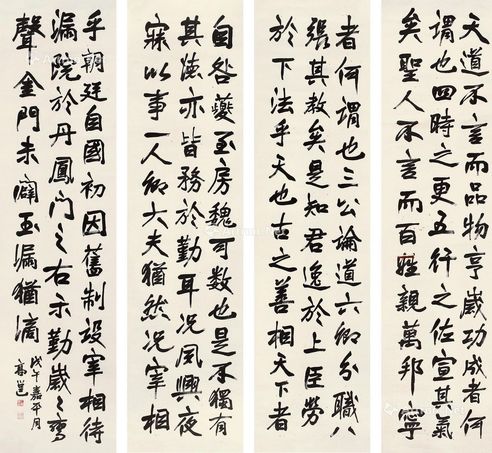 天道不言而品物亨歲功成者何
謂也四時之更五行之佐宣其氣
矣聖人不言而百姓親萬邦寧
者何謂也三公論道六卿分職八
張其教矣是知君逸於上臣勞
於下法乎天也古之善相天下者
自咎夔至房魏可數也是不獨有
其德亦皆務於勤耳況夙興夜
寐以事一人卿大夫猶然況宰相
乎朝廷自國初因舊制設宰相待
漏院於丹鳳門之右示勤歲々鸞
聲金門未闢玉漏猶滴
戊午嘉平月
高邕